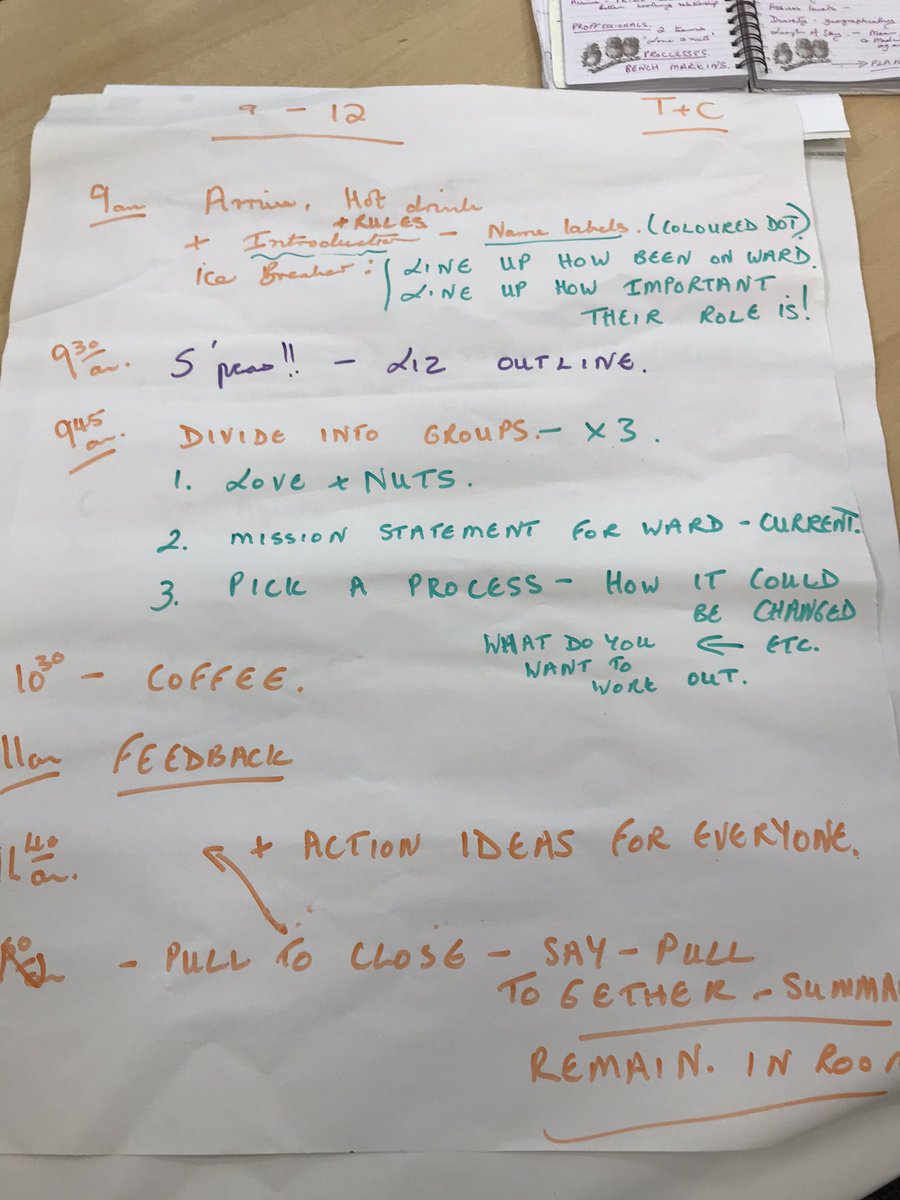 PROFFESSIONALS.
PROCCESSES.
BENCH MARKING.
Access levels -
Diversity - geographically
length of stay. - Mean
9 - 12
T+C
9am Arrive, Hot drink
+ RULES
+ Introduction - Name labels. (COLOURED DOT)
Ice Breaker: LINE UP HOW BEEN ON WARD.
LINE UP HOW IMPORTANT
THEIR ROLE IS!
9 30 am. 5' !! - LIZ OUTLINE.
9 45 am. DIVIDE INTO GROUPS. - X 3.
1. LOVE + NUTS.
2. MISSION STATEMENT FOR WARD - CURRENT.
3. PICK A PROCESS - HOW IT COULD
BE CHANGED
WHAT DO YOU ← ETC.
WANT TO
WORK OUT.
10 30 - COFFEE.
11am FEEDBACK
40 am. + ACTION IDEAS FOR EVERYONE.
- PULL TO CLOSE - SAY - PULL
TOGETHER - SUMMA
REMAIN. IN ROO